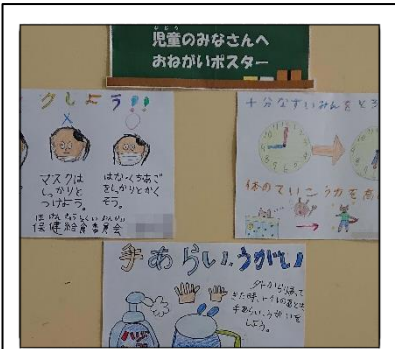 児童のみなさんへ
じどう
おねがいポスター
クしよう!!
× ○
マスクは
しっかりと
つけよう。
はな・くちあご
をしっかりとかく
そう。
ほけんきゅうしょくいいんかい
保健給食委員会
十分なすいみんをとろ
体のていこう力を高
手あらい、うがい
外から帰って
きた時、トイレのあとは
手あらい、うがいを
しよう。